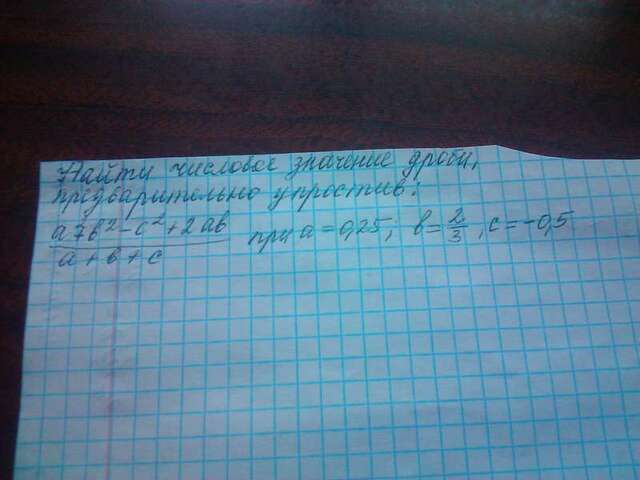 Найти числовое значение дроби,
предварительно упростив:
a²+b²-c²+2ab
a+b+c
при a=0,25; b=2/3, c=-0,5